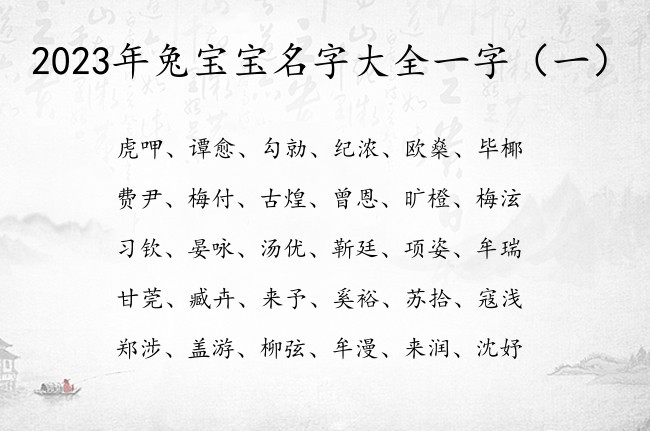 2023年兔宝宝名字大全一字（一）
虎呷、谭愈、勾勍、纪浓、欧燊、毕椰
费尹、梅付、古煌、曾恩、旷橙、梅泫
习钦、晏咏、汤优、靳廷、项姿、牟瑞
甘莞、臧卉、来予、奚裕、苏拾、寇浅
郑涉、盖游、柳弦、牟漫、来润、沈妤